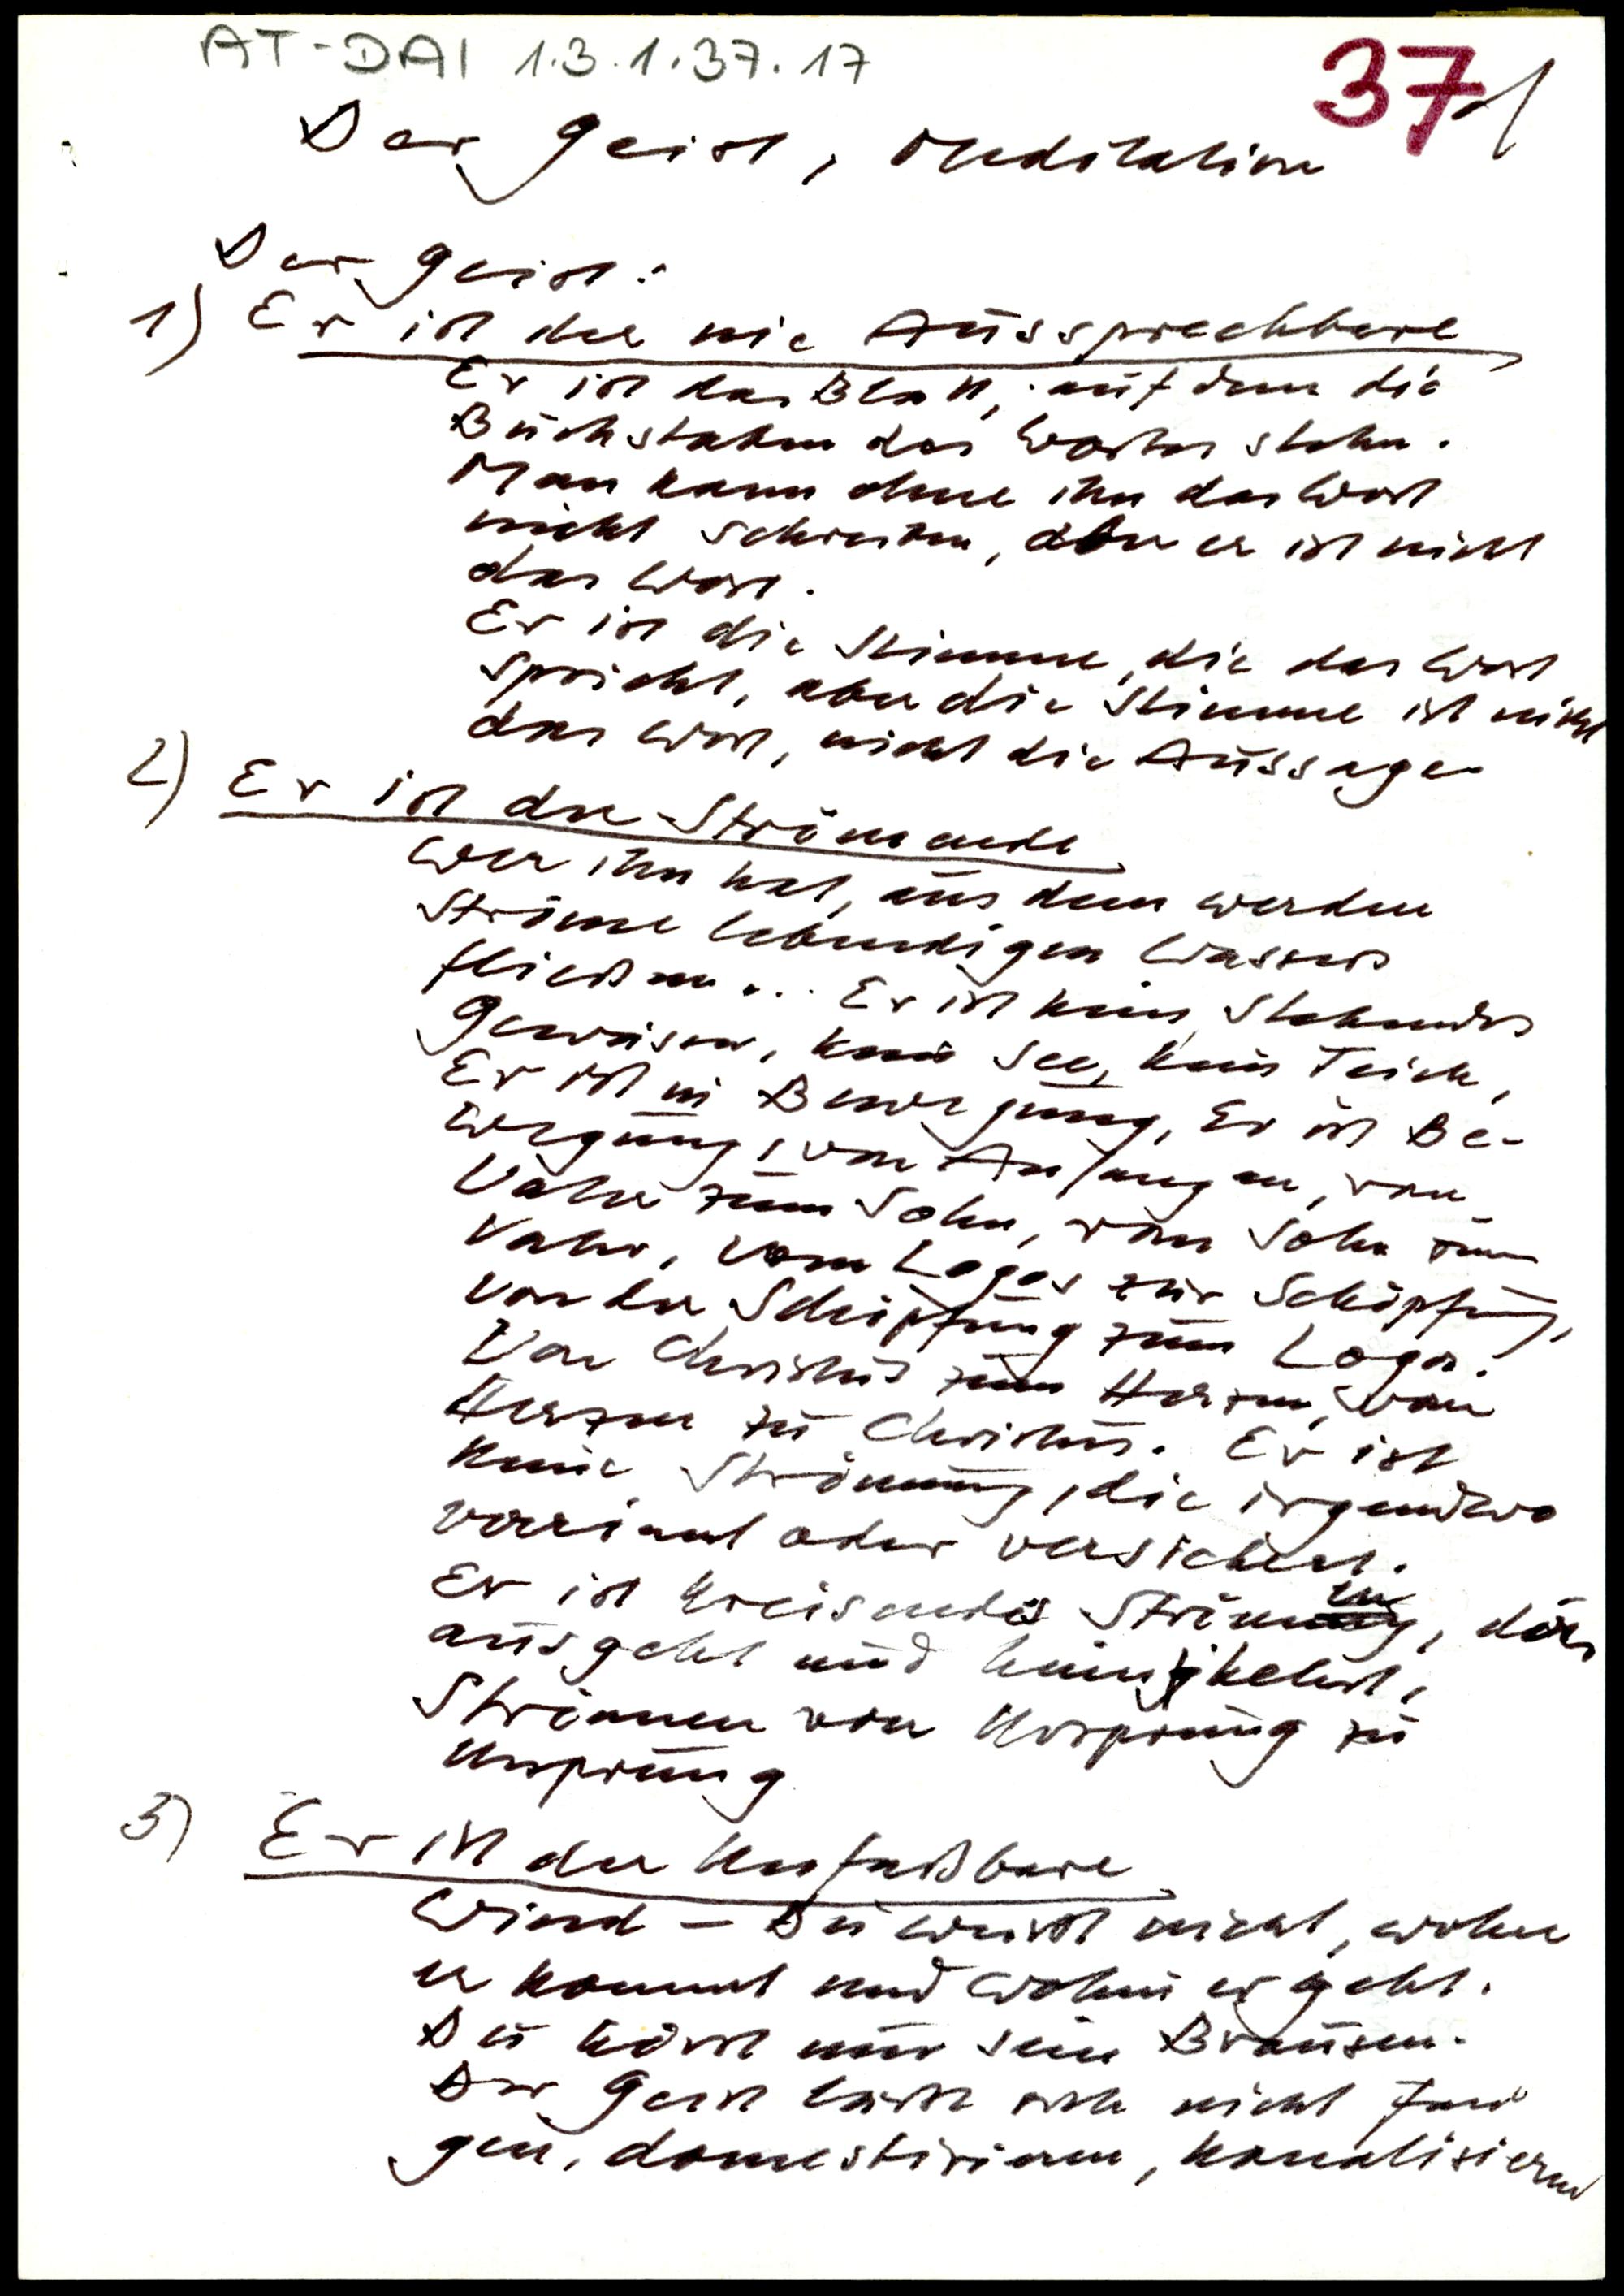 AT-DAI 1.3.1.37.17
37/1
Der Geist, Meditation
Der Geist:
1) Er ist der nie Aussprechbare
Er ist das Blatt, auf dem die
Buchstaben des Wortes stehn.
Man kann ohne ihn das Wort
nicht schreiben, aber er ist nicht
das Wort.
Er ist die Stimme, die das Wort
spricht, aber die Stimme ist nicht
das Wort, nicht die Aussage.
2) Er ist der Strömende
Wer ihn hat, aus dem werden
Ströme lebendigen Wassers
fließen... Er ist kein stehendes
Gewässer, kein See, kein Teich,
Er ist in Bewegung, Er ist Be-
wegung, von Anfang an, vom
Vater zum Sohn, vom Sohn zum
Vater, vom Logos zur Schöpfung,
von der Schöpfung zum Logos.
Von Christus zum Herzen, vom
Herzen zu Christus. Er ist
keine Strömung, die irgendwo
verrinnt oder versickert.
Er ist kreisendes Strömen, das
ausgeht und heimkehrt,
Strömen von Ursprung zu
Ursprung
3) Er ist der Unfaßbare
Wind – Du weißt nicht, woher
er kommt und wohin er geht.
Du hörst nur sein Brausen.
Der Geist läßt sich nicht fan
gen, domestizieren, kanalisieren